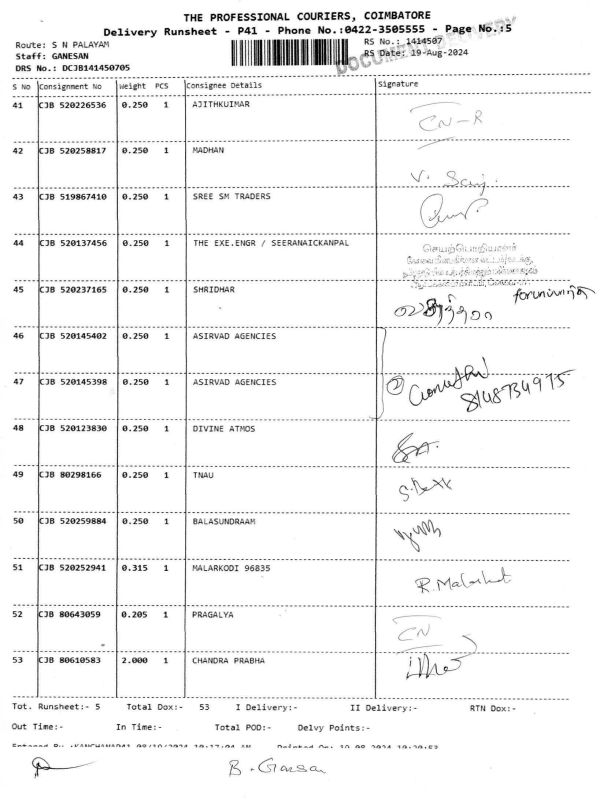 THE PROFESSIONAL COURIERS, COIMBATORE
Delivery Runsheet - P41 - Phone No.:0422-3505555 - Page No.:5
DOCUMENT DELIVERY
Route: S N PALAYAM
RS No.: 1414507
Staff: GANESAN
RS Date: 19-Aug-2024
DRS No.: DCJB141450705
S No Consignment No Weight PCS Consignee Details Signature
41 CJB 520226536 0.250 1 AJITHKUIMAR
CN-R
42 CJB 520258817 0.250 1 MADHAN
43 CJB 519867410 0.250 1 SREE SM TRADERS
44 CJB 520137456 0.250 1 THE EXE.ENGR / SEERANAICKANPAL
செயற்பொறியாளர்
45 CJB 520237165 0.250 1 SHRIDHAR
46 CJB 520145402 0.250 1 ASIRVAD AGENCIES
47 CJB 520145398 0.250 1 ASIRVAD AGENCIES
②
8148734975
48 CJB 520123830 0.250 1 DIVINE ATMOS
49 CJB 80298166 0.250 1 TNAU
50 CJB 520259884 0.250 1 BALASUNDRAAM
51 CJB 520252941 0.315 1 MALARKODI 96835
52 CJB 80643059 0.205 1 PRAGALYA
CN
53 CJB 80610583 2.000 1 CHANDRA PRABHA
Tot. Runsheet:- 5 Total Dox:- 53 I Delivery:- II Delivery:- RTN Dox:-
Out Time:- In Time:- Total POD:- Delvy Points:-
Entered By :KANCHANAP41 08/19/2024 10:17:04 AM Printed On: 19-08-2024 10:20:53